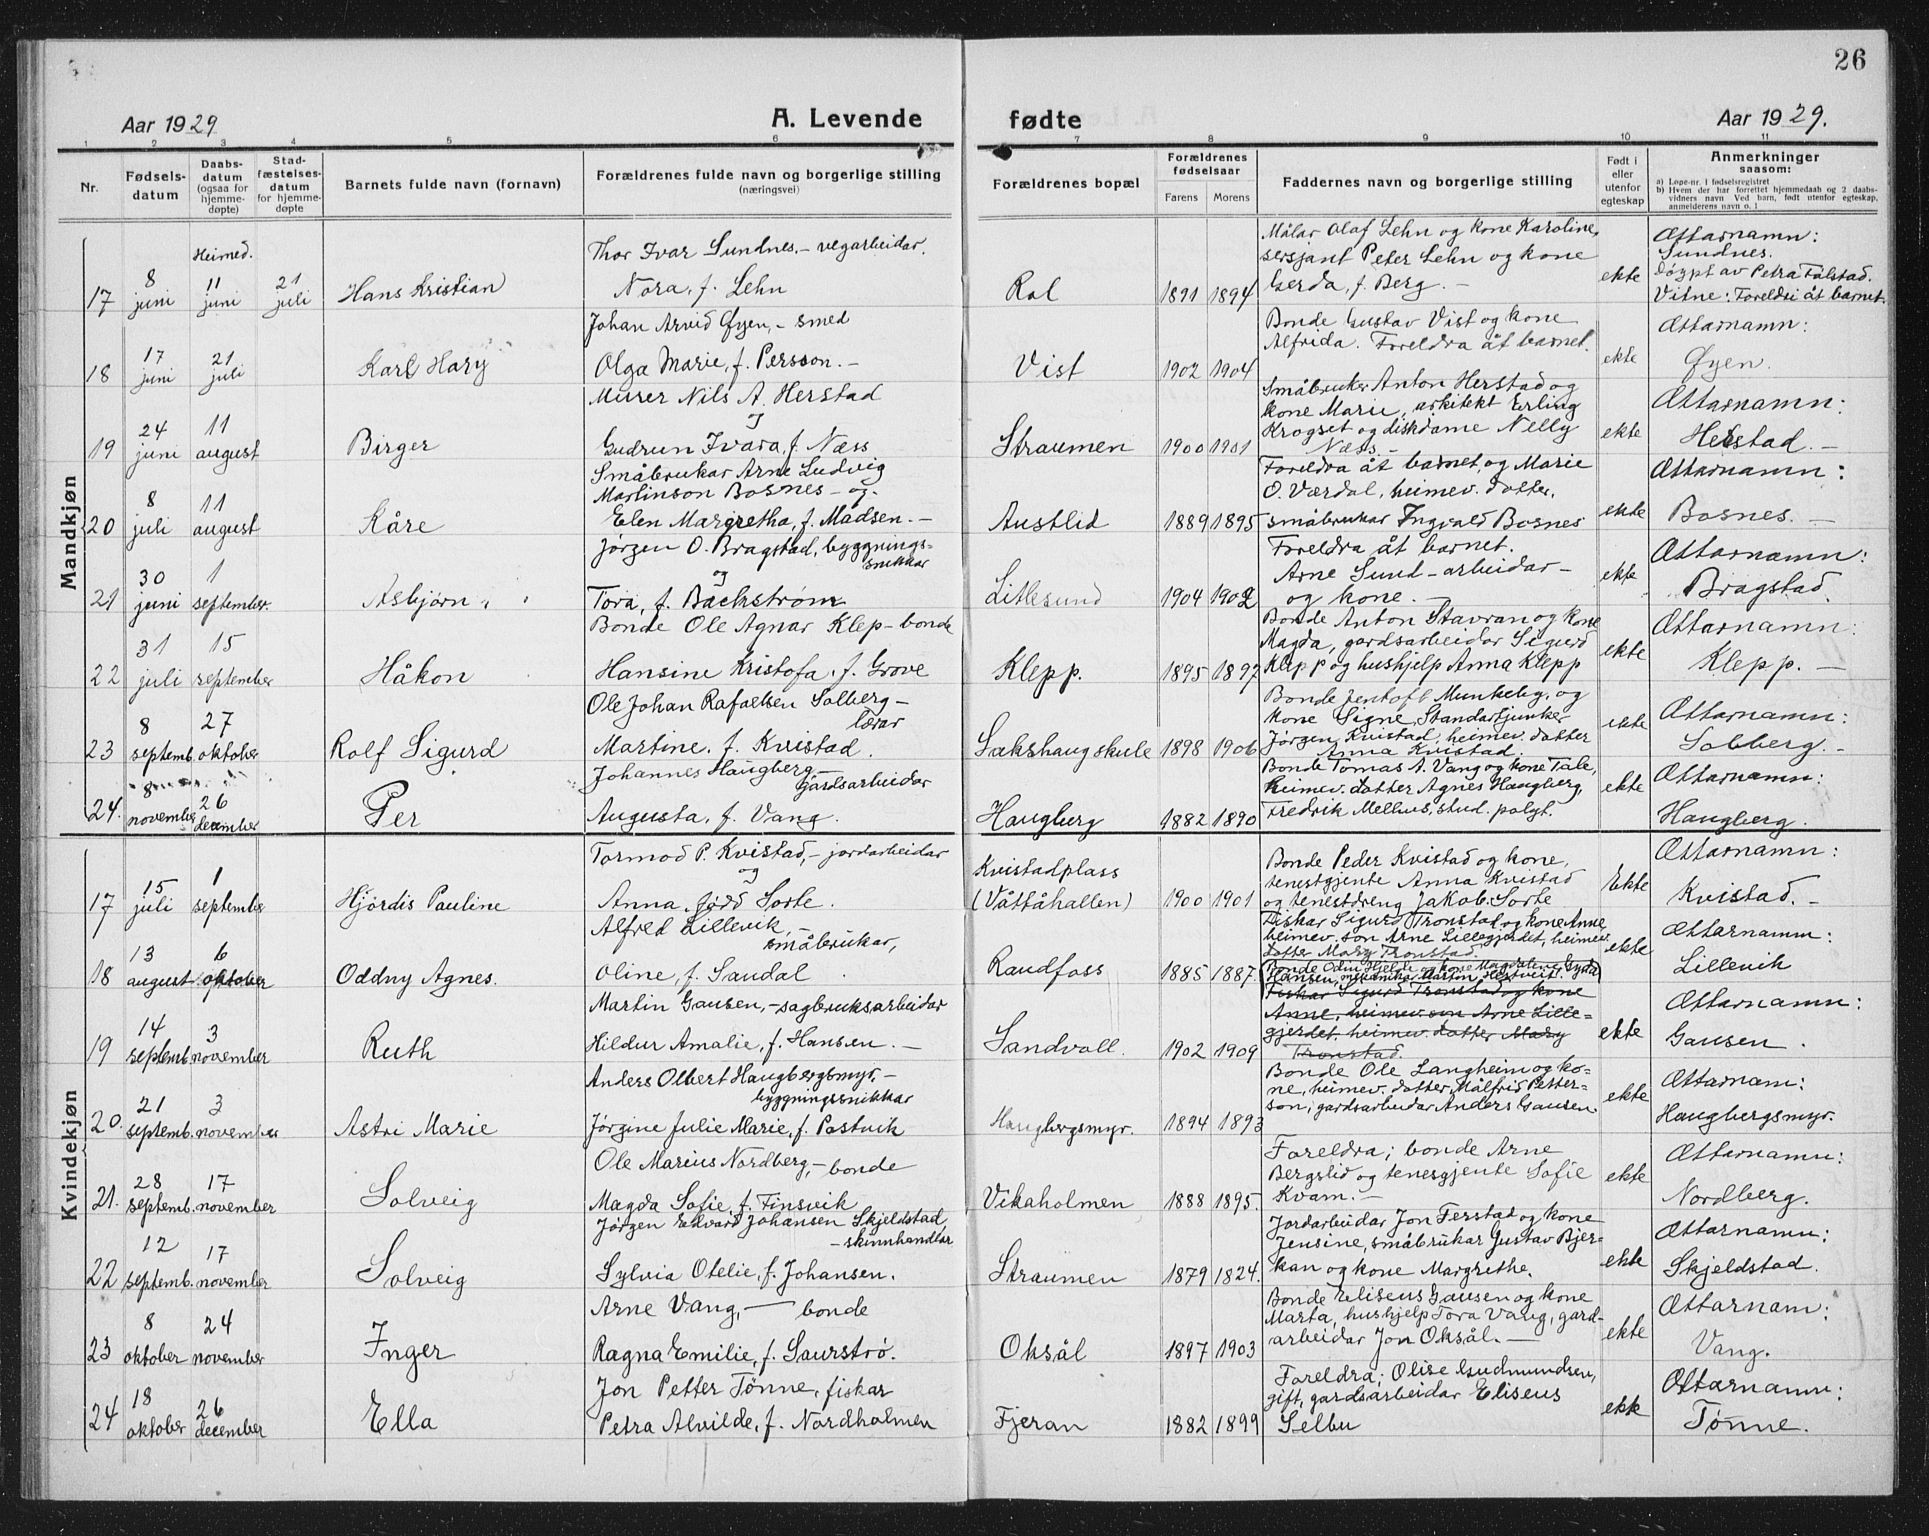 26
Aar 1929
A. Levende
fødte
Aar 1929.
1 2 3 4 5 6 7 8 9 10 11
Nr.
Fødsels-
datum
Daabs-
datum
(ogsaa for
hjemme-
døpte)
Stad-
fæstelses-
datum
for hjemme-
døpte
Barnets fulde navn (fornavn)
Forældrenes fulde navn og borgerlige stilling
(næringsvei)
Forældrenes bopæl
Forældrenes
fødselsaar
Farens Morens
Faddernes navn og borgerlige stilling
Født i
eller
utenfor
egteskap
Anmerkninger
saasom:
a) Løpe-nr. i fødselsregistret
b) Hvem der har forrettet hjemmedaab og 2 daabs-
vidners navn Ved barn, født utenfor egteskap,
anmelderens navn o. l
Mandkjøn
17
8
juni
Heimed.
11
juni
21
juli
Hans Kristian
Thor Ivar Sundnes, - vegarbeidar.
Nora, f. Lehn
Rol
1891 1894
Målar Olaf Lehn og kone Karoline,
sersjant Peter Lehn og kone
Gerda, f. Berg. -
ekte
Ættarnamn:
Sundnes.
Døypt av Petra Fålstad.
Vitne: Foreldri åt barnet.
18
17
juni
21
juli
Karl Hary
Johan Arvid Øyen, - smed
Olga Marie, f. Persson. -
Vist
1902 1904
Bonde Gustav Vist og kone
Alfrida. Foreldra åt barnet.
ekte
Ættarnamn:
Øyen.
19
24
juni
11
august
Birger
Murer Nils A. Herstad
og
Gudrun Ivara, f. Næss
Straumen
1900 1901
Småbruker Anton Herstad og
kone Marie, arkitekt Erling
Krogset og diskdame Nelly
Næss. -
ekte
Ættarnamn:
Herstad. -
20
8
juli
11
august
Kåre
Småbrukar Arne Ludvig
Martinson Bosnes - og -
Elen Margretha, f. Madsen. -
Austlid
1889 1895
Foreldra åt barnet, og Marie
O. Værdal, heimev. dotter,
småbrukar Ingvald Bosnes
ekte
Ættarnamn:
Bosnes. -
21
30
juni
1
september.
Asbjørn
Jørgen O. Bragstad, byggnings-
snikkar
og
Tora, f. Bachstrøm
Litlesund
1904 1902
Foreldra åt barnet.
Arne Sund - arbeidar -
og kone. -
ekte
Ættarnamn:
Bragstad.
22
31
juli
15
september
Håkon
Bonde Ole Agnar Klep - bonde
Hansine Kristofa, f. Grove
Klepp.
1895 1897
Bonde Anton Stavran og kone
Magda, gardsarbeidar Sigurd
Klepp og hushjelp Anna Klepp
ekte
Ættarnamn:
Klepp. -
23
8
septemb.
27
oktober
Rolf Sigurd
Ole Johan Rafaelsen Solberg -
lærar
Martine, f. Kvistad.
Sakshaug skule
1898 1906
Bonde Jentoft Munkeby, og
kone Signe, Standartjunker
Jørgen Kvistad, heimev. dotter
Anna Kvistad.
ekte
Ættarnamn:
Solberg. -
24.
8
november
26
december
Per
Johannes Haugberg -
gardsarbeidar
Augusta, f. Vang.
Haugberg
1882 1890
Bonde Tomas A. Vang og kone Tale,
heimev. dotter Agnes Haugberg,
Fredrik Melhus, stud. polyt.
ekte
Ættarnamn:
Haugberg.
Kvindekjøn
17
15
juli
1
september
Hjørdis Pauline
Tormod P. Kvistad, - jordarbeidar
og
Anna, fødd Sorte.
Kvistadplass
(Våttåhallen)
1900 1901
Bonde Peder Kvistad og kone,
tenestgjente Anna Kvistad
og tenestdreng Jakob Sorte
Ekte
Ættarnamn:
Kvistad. -
18
13
august
6
oktober
Oddny Agnes.
Alfred Lillevik, -
småbrukar,
Oline, f. Saudal
Raudfoss
1885 1887.
Fiskar Sigurd Tronstad og kone Anne,
heimev. son Arne Lillegjerdet, heimev.
dotter Mary Tronstad.
ekte
Ættarnamn:
Lillevik
19
14
septemb.
3
november
Ruth
Martin Gausen, - sagbruksarbeidar
Hildur Amalie, f. Hansen. -
Sandvoll.
1902 1909
Bonde Odin Hjelde og kone Magdalene, Gyda
Hansen, mekanikar Marton Hestveit.
Fiskar Sigurd Tronstad og kone
Anne, heimev. son Arne Lille-
gjerdet, heimev. dotter Mary
Tronstad.
ekte
Ættarnamn:
Gausen.
20.
21
septemb.
3
november
Astri Marie
Anders Olbert Haugbergsmyr, -
byggningssnikkar
Jørgine Julie Marie, f. Postvik
Haugbergsmyr.
1894 1893
Bonde Ole Langheim og ko-
ne, heimev. dotter, Målfrid Petter-
son, gardsarbeidar Anders Gausen.
ekte
Ættarnam:
Haugbergsmyr.
21.
28
septemb.
17
november
Solveig
Ole Marius Nordberg, - bonde
Magda Sofie, f. Finsvik
Vikaholmen
1888 1895.
Foreldra; bonde Arne
Bergslid og tenesgjente Sofie
Kvam. -
ekte
Ættarnamn:
Nordberg.
22
12
septemb.
17
november
Solveig
Jørgen Edvard Johansen Skjeldstad,
- skinnhandlar
Sylvia Otelie, f. Johansen.
Straumen
1879 1824.
Jordarbeidar Jon Ferstad og kone
Jensine, småbrukar Gustav Bjer-
kan og kone Margrethe.
ekte
Ættarnamn:
Skjeldstad.
23
8
oktober
24
november
Inger
Arne Vang, - bonde
Ragna Emilie, f. Saurstrø.
Oksål
1897 1903
Bonde Eliseus Gausen og kone
Marta, hushjelp Tora Vang, gard-
arbeidar Jon Oksål. -
ekte
Ættarnam:
Vang.
24
18
oktober
26
december
Ella
Jon Petter Tønne, fiskar
Petra Alvilde, f. Nordholmen
Fjeran
1882 1899
Foreldra; Olise Gudmundsen,
gift, gardsarbeidar Eliseus
Selbu
ekte
Ættarnamn:
Tønne.